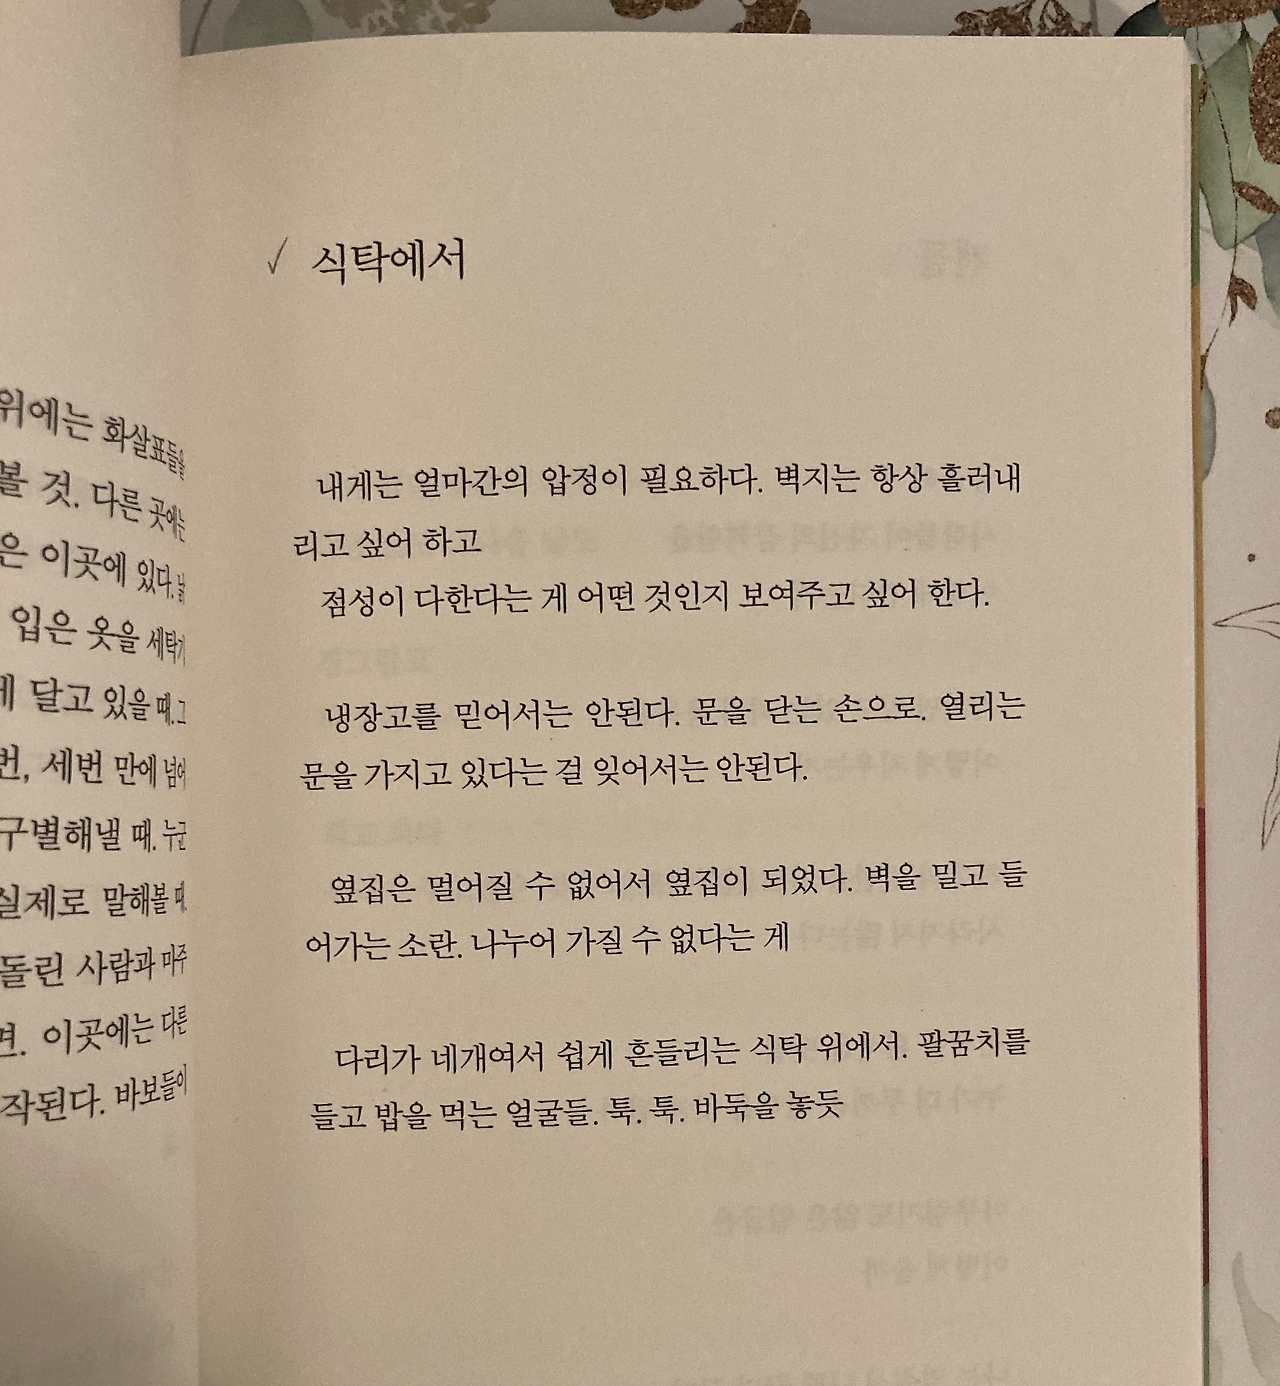 위에는 화살표들을
볼 것. 다른 곳에는
은 이곳에 있다. 낡
입은 옷을 세탁기
게 달고 있을 때. 그
번, 세번 만에 넘어
구별해낼 때. 누군
실제로 말해볼 때.
돌린 사람과 마주
면. 이곳에는 다른
작된다. 바보들이
✓ 식탁에서
내게는 얼마간의 압정이 필요하다. 벽지는 항상 흘러내
리고 싶어 하고
점성이 다한다는 게 어떤 것인지 보여주고 싶어 한다.
냉장고를 믿어서는 안된다. 문을 닫는 손으로. 열리는
문을 가지고 있다는 걸 잊어서는 안된다.
옆집은 멀어질 수 없어서 옆집이 되었다. 벽을 밀고 들
어가는 소란. 나누어 가질 수 없다는 게
다리가 네개여서 쉽게 흔들리는 식탁 위에서. 팔꿈치를
들고 밥을 먹는 얼굴들. 툭. 툭. 바둑을 놓듯